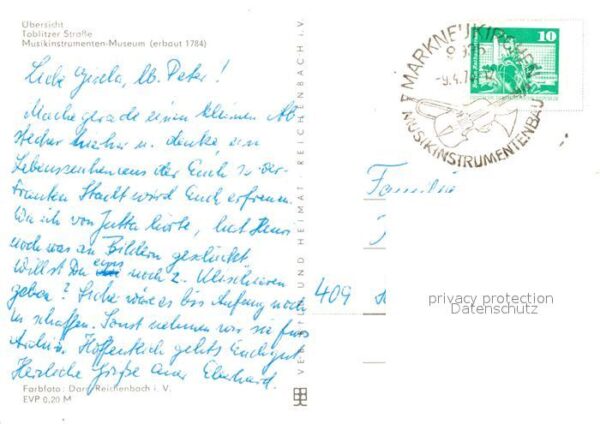 Übersicht
Toblitzer Straße
Musikinstrumenten-Museum (erbaut 1784)
Liebe Gisela, lb. Peter!
Mache gerade einen kleinen Ab
stecher hierher u. denke, ein
Lebenszeichen aus der Euch so ver-
trauten Stadt wird Euch erfreuen.
Wie ich von Jutta hörte, hat Hans
noch was an Bildern geschickt
Willst Du noch z.
geben? Sicher wäre es bis Anfang noch
zu schaffen. Sonst nehmen wir sie fürs
Archiv. Hoffentlich geht's Euch gut
Herzliche Grüße Euer Eberhard.
Farbfoto: Darr, Reichenbach i. V.
EVP 0,20 M
VERLAG BILD UND HEIMAT · REICHENBACH i. V.
MARKNEUKIRCHEN
MUSIKINSTRUMENTENBAU
10
Familie
409
privacy protection
Datenschutz